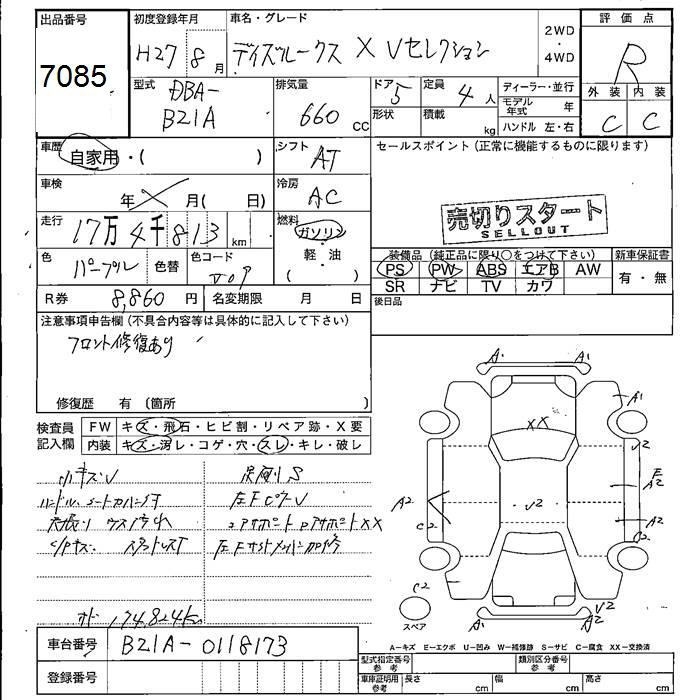 出品番号
7085
初度登録年月
H27 8月
車名・グレード
デイズルークス X Vセレクション
2WD
・
4WD
評価点
R
外装 内装
C C
型式
DBA-
B21A
排気量
660 cc
ドア
5
定員
4 人
形状
積載
kg
ディーラー・並行
モデル年式 年
ハンドル 左・右
車歴
自家用・( )
シフト
AT
セールスポイント (正常に機能するものに限ります)
売切りスタート
SELLOUT
車検
年 月( 日)
冷房
AC
走行
17万4千813 km
燃料
ガソリン
・
軽・油
( )
色
パープル
色替
色コード
装備品 (純正品に限り○をつけて下さい)
PS PW ABS エアB AW
SR ナビ TV カワ
新車保証書
有・無
R券 8,860円
名変期限 月 日
後日品
注意事項申告欄 (不具合内容等は具体的に記入して下さい)
フロント修復あり
修復歴 有 (箇所 )
検査員
記入欄
FW キズ・飛石・ヒビ割・リペア跡・X要
内装 キズ・汚レ・コゲ・穴・スレ・キレ・破レ
小キズV
ハンドル、シートカバー
左Fピラー
コアサポート XX
A1 A1
A1
XX
V2
E
A2
A2
V2
A2
C2
C2
V2
A2 A2
スペア
174,824km
A−キズ E−エクボ U−凹み W−補修跡 S−サビ C−腐食 XX−交換済
車台番号
B21A-0118173
登録番号
型式指定番号
参考
類別区分番号
参考
車庫証明用
参考
長さ cm 幅 cm 高さ cm